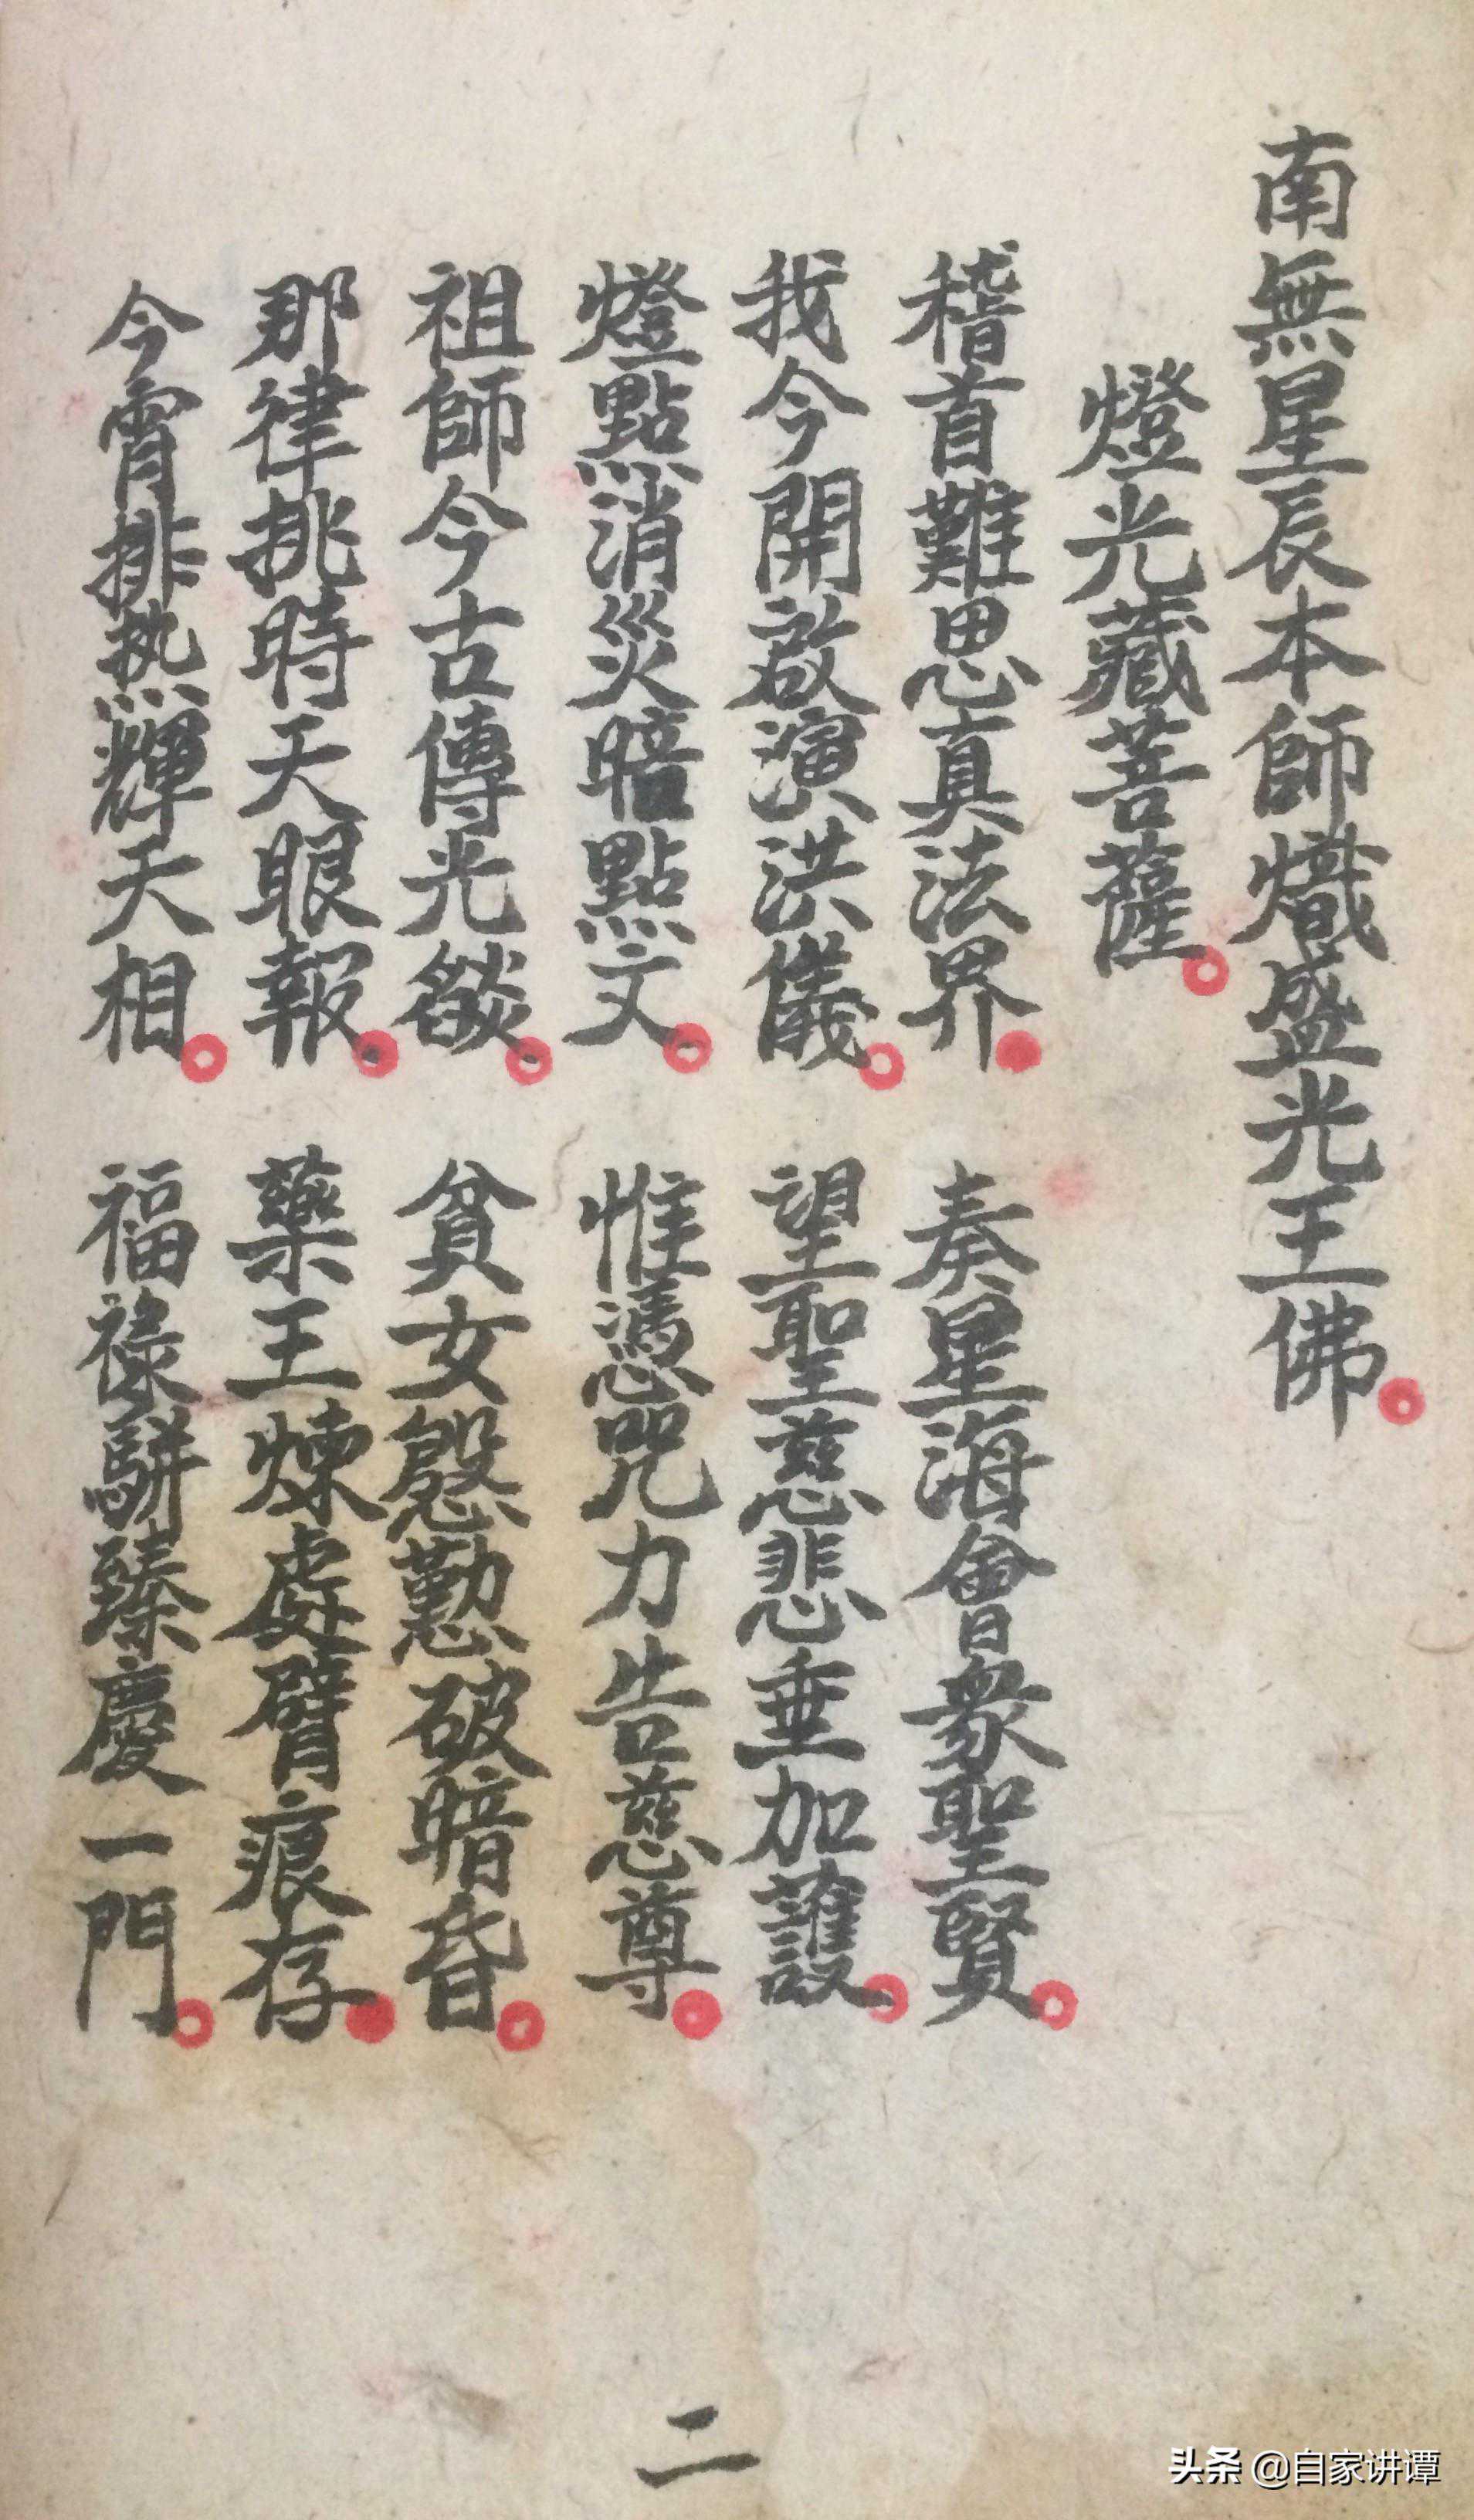 南無星辰本師熾盛光王佛
燈光藏菩薩
稽首難思真法界 奏星海會衆聖賢
我今開啟演洪儀 望聖慈悲垂加護
燈點消災暗點文 惟憑咒力告慈尊
祖師今古傳光燄 貧女慇懃破暗昏
那律挑時天眼報 藥王煉處臂痕存
今宵排热輝天相 福祿駢臻慶一門
二
头条 @自家讲谭